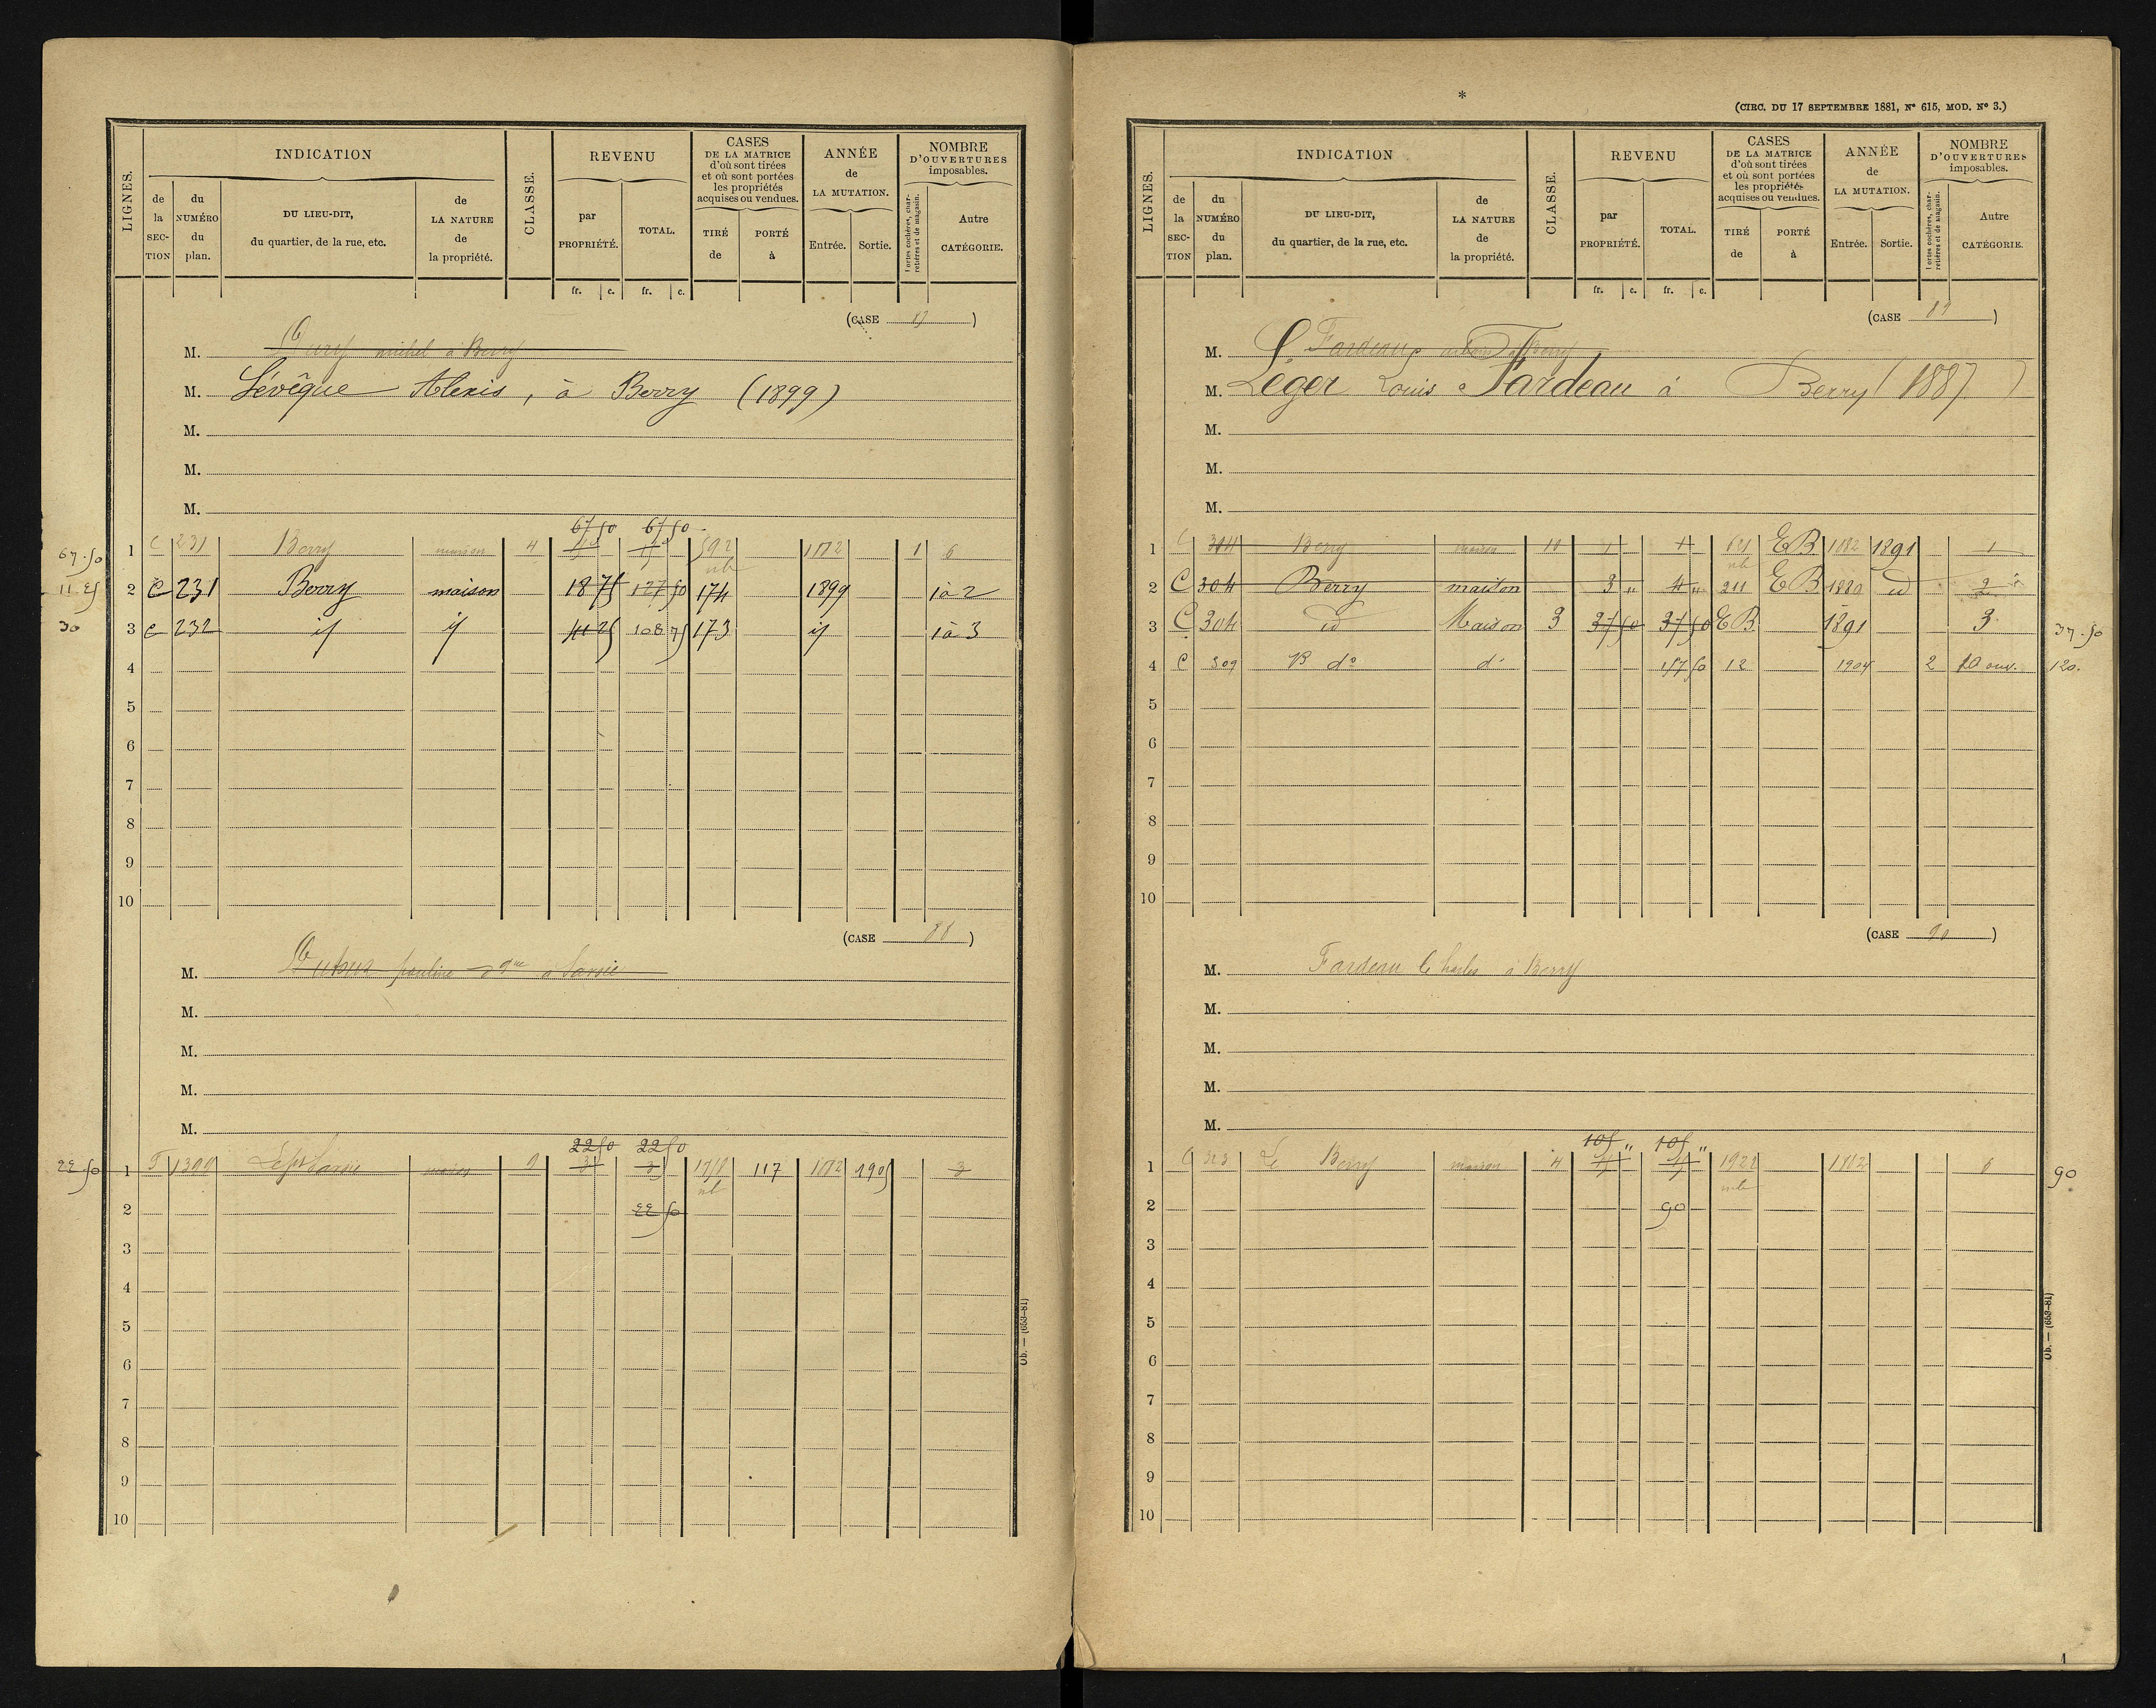 LIGNES.
INDICATION
de la SECTION
du NUMÉRO du plan.
DU LIEU-DIT, du quartier, de la rue, etc.
de LA NATURE de la propriété.
CLASSE.
REVENU
par PROPRIÉTÉ.
TOTAL.
CASES DE LA MATRICE d'où sont tirées et où sont portées les propriétés acquises ou vendues.
TIRÉ de
PORTÉ à
ANNÉE de LA MUTATION.
Entrée.
Sortie.
NOMBRE D'OUVERTURES imposables.
Portes cochères, charretières et de magasin.
Autre CATÉGORIE.
fr. c. fr. c.
(CASE )
M. michel à Berry
M. Lévêque Alexis, à Berry (1899)
M.
M.
M.
67 50 67 50
67.50 1 C 231 Berry maison 4 592 1882 1 6
11.25 2 C 231 Berry maison 18 75 127 50 174 1899 1 à 2
30 3 C 232 id id 41 25 108 75 173 id 1 à 3
4
5
6
7
8
9
10
(CASE 88)
M. Dubus pauline à
M.
M.
M.
M.
22 50 22 50
22.50 1 F 9 3 3 117 1882 1905 3
2 22 50
3
4
5
6
7
8
9
10
Ob. — (653-81)
*
(CIRC. DU 17 SEPTEMBRE 1881, N° 615, MOD. N° 3.)
LIGNES.
INDICATION
de la SECTION
du NUMÉRO du plan.
DU LIEU-DIT, du quartier, de la rue, etc.
de LA NATURE de la propriété.
CLASSE.
REVENU
par PROPRIÉTÉ.
TOTAL.
CASES DE LA MATRICE d'où sont tirées et où sont portées les propriétés acquises ou vendues.
TIRÉ de
PORTÉ à
ANNÉE de LA MUTATION.
Entrée.
Sortie.
NOMBRE D'OUVERTURES imposables.
Portes cochères, charretières et de magasin.
Autre CATÉGORIE.
fr. c. fr. c.
(CASE 89)
M. Fardeau Berry
M. Léger Louis Fardeau à Berry (1887)
M.
M.
M.
1 C 304 Berry maison 10 1 1 EB 1882 1891 1
2 C 304 Berry maison 3 " 4 " 211 EB id 2
3 C 304 id Maison 3 37 50 37 50 EB 1891 3 37.50
4 C 309 B d° d° 157 50 12 1904 2 10 ouv. 120.
5
6
7
8
9
10
(CASE 90)
M. Fardeau Charles à Berry
M.
M.
M.
M.
105 " 105 "
1 C 323 Le Berry maison 4 1922 1882 6 90
2 90
3
4
5
6
7
8
9
10
Ob. — (653-81)